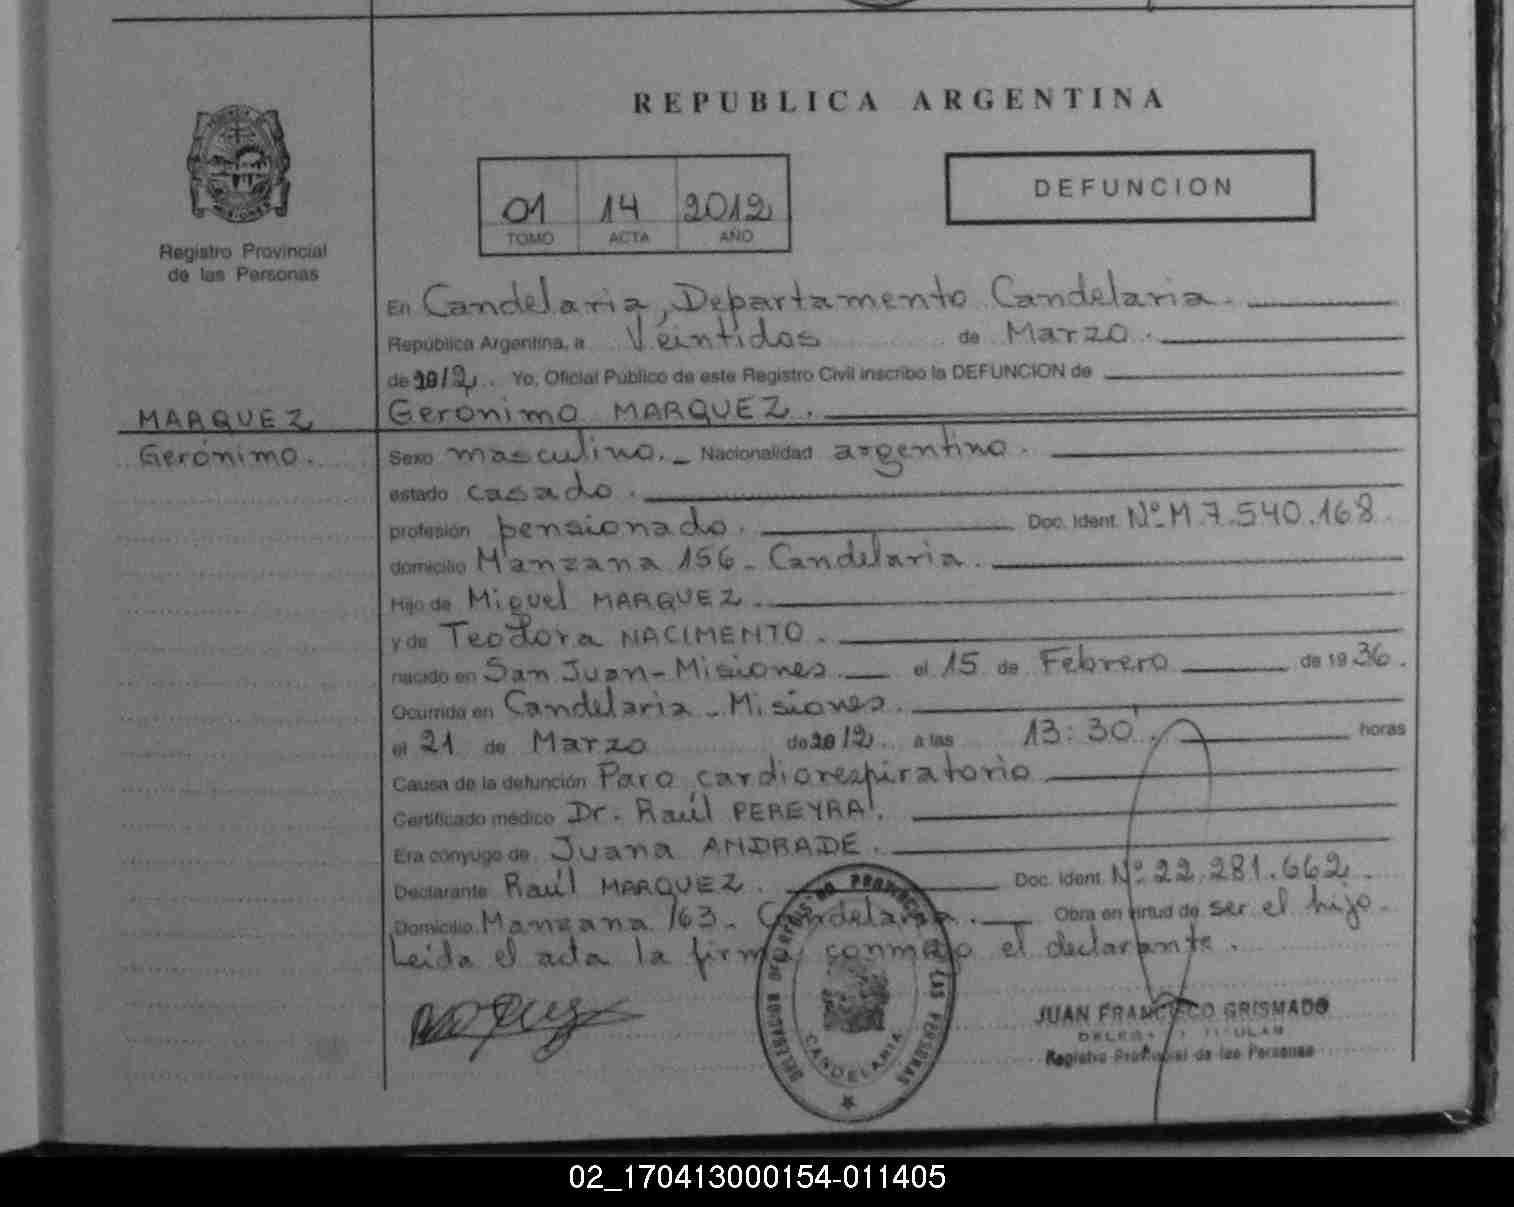 REPUBLICA ARGENTINA
MISIONES
Registro Provincial
de las Personas
01 14 2012
TOMO ACTA AÑO
DEFUNCION
En Candelaria, Departamento Candelaria.
República Argentina, a Veintidos de Marzo.
de 2012. Yo, Oficial Público de este Registro Civil inscribo la DEFUNCION de
MARQUEZ
Gerónimo.
Gerónimo MARQUEZ.
Sexo masculino. Nacionalidad argentino.
estado casado.
profesión pensionado. Doc. Ident. Nº M. 7.540.168.
domicilio Manzana 156 - Candelaria.
Hijo de Miguel MARQUEZ.
y de Teodora NACIMENTO.
nacido en San Juan - Misiones. el 15 de Febrero de 1936.
Ocurrida en Candelaria - Misiones.
el 21 de Marzo de 2012. a las 13:30'. horas
Causa de la defunción Paro cardiorespiratorio
Certificado médico Dr. Raúl PEREYRA.
Era cónyuge de Juana ANDRADE.
Declarante Raúl MARQUEZ. Doc. Ident. Nº 22.281.662.
Domicilio Manzana 163 - Candelaria. Obra en virtud de ser el hijo.
Leída el acta la firma conmigo el declarante.
DELEGACION DEL REGISTRO PROVINCIAL DE LAS PERSONAS
CANDELARIA
JUAN FRANCISCO GRISMADO
DELEGADO TITULAR
Registro Provincial de las Personas
02_170413000154-011405